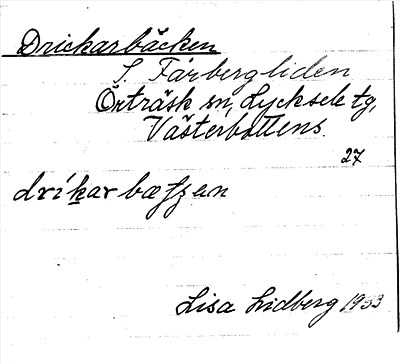 Drickarbäcken
S. Fårbergliden
Örträsk sn, Lycksele tg,
Västerbottens.
27
dríkar
Lisa Lidberg 1933